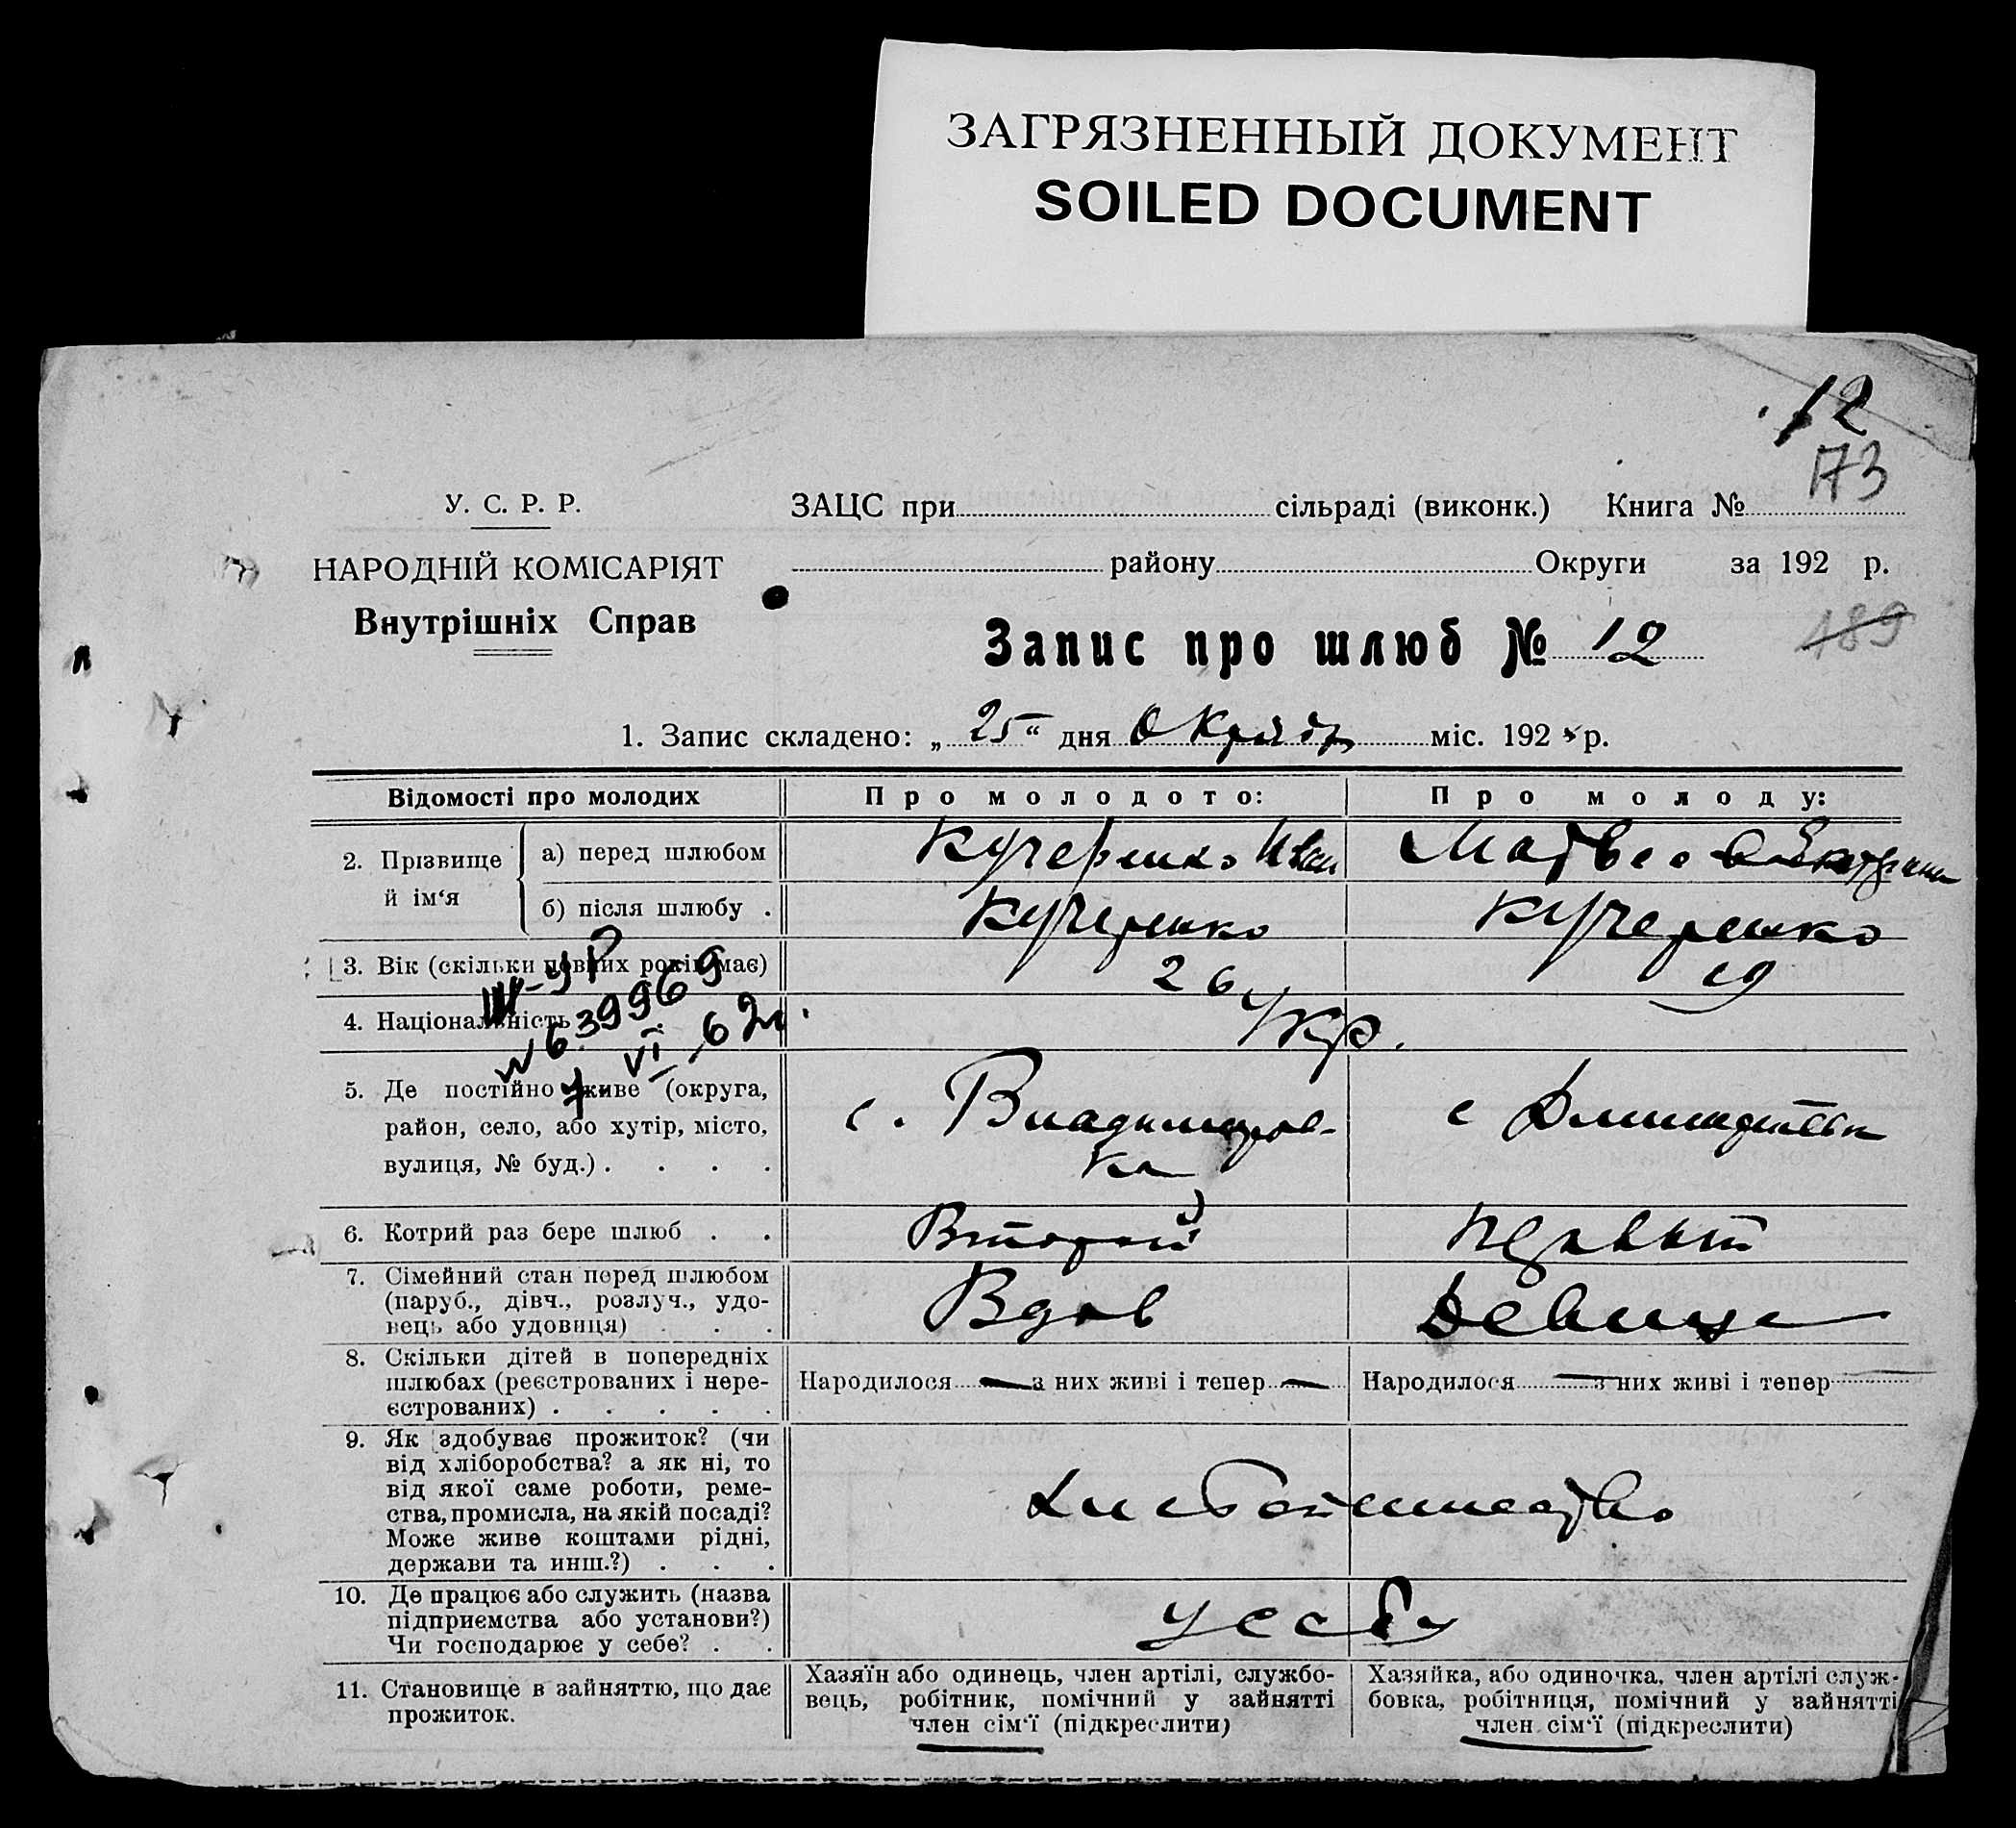 ЗАГРЯЗНЕННЫЙ ДОКУМЕНТ
SOILED DOCUMENT
12
173
У. С. Р. Р.
НАРОДНІЙ КОМІСАРІЯТ
Внутрішніх Справ
ЗАЦС при сільраді (виконк.) Книга №
району Округи за 192 р.
Запис про шлюб № 12
489
1. Запис складено: „ 25 “ дня міс. 192 р.
Відомості про молодих
Про молодого:
Про молоду:
2. Прізвище й ім‘я
а) перед шлюбом
Кучеренко Иван
б) після шлюбу .
Кучеренко
Кучеренко
3. Вік (скільки повних років має)
26
19
4. Національність
Укр.
III-УР
№ 639969
7. VI 62г.
5. Де постійно живе (округа,
район, село, або хутір, місто,
вулиця, № буд.) . . . .
с. Владимиров-
ка
с
6. Котрий раз бере шлюб . .
Второй
Первый
7. Сімейний стан перед шлюбом
(паруб., дівч., розлуч., удо-
вець або удовиця) . . .
Вдов
Девица
8. Скільки дітей в попередніх
шлюбах (реєстрованих і нере-
єстрованих) . . . . .
Народилося — з них живі і тепер —
Народилося — з них живі і тепер —
9. Як здобуває прожиток? (чи
від хліборобства? а як ні, то
від якої саме роботи, реме-
ства, промисла, на якій посаді?
Може живе коштами рідні,
держави та инш.?) . . .
Хлебопашество
10. Де працює або служить (назва
підприємства або установи?)
Чи господарює у себе? . .
у себя
11. Становище в зайняттю, що дає
прожиток.
Хазяїн або одинець, член артілі, службо-
вець, робітник, помічний у зайнятті
член сім‘ї (підкреслити)
Хазяйка, або одиночка, член артілі служ-
бовка, робітниця, помічний у зайнятті
член сім‘ї (підкреслити)